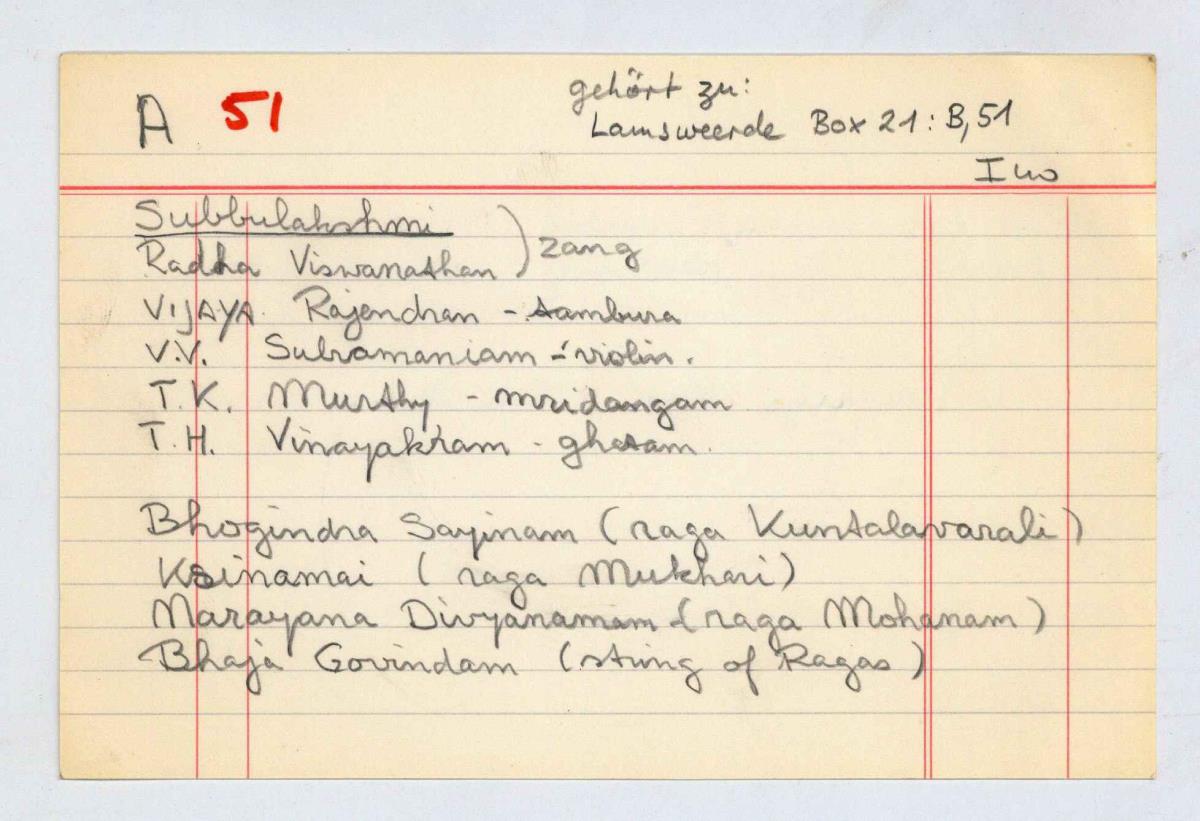 A 51
gehört zu:
Lamsweerde Box 21: B, 51
Ino
Subbulakshmi
Radha Viswanathan ) zang
VIJAYA Rajendran - tambura
V.V. Subramaniam - violin.
T.K. Murthy - mridangam
T.H. Vinayakram - ghatam.
Bhogindra Sayinam (raga Kuntalavarali)
Ksinamai (raga Mukhari)
Narayana Divyanamam (raga Mohanam)
Bhaja Govindam (string of Ragas)